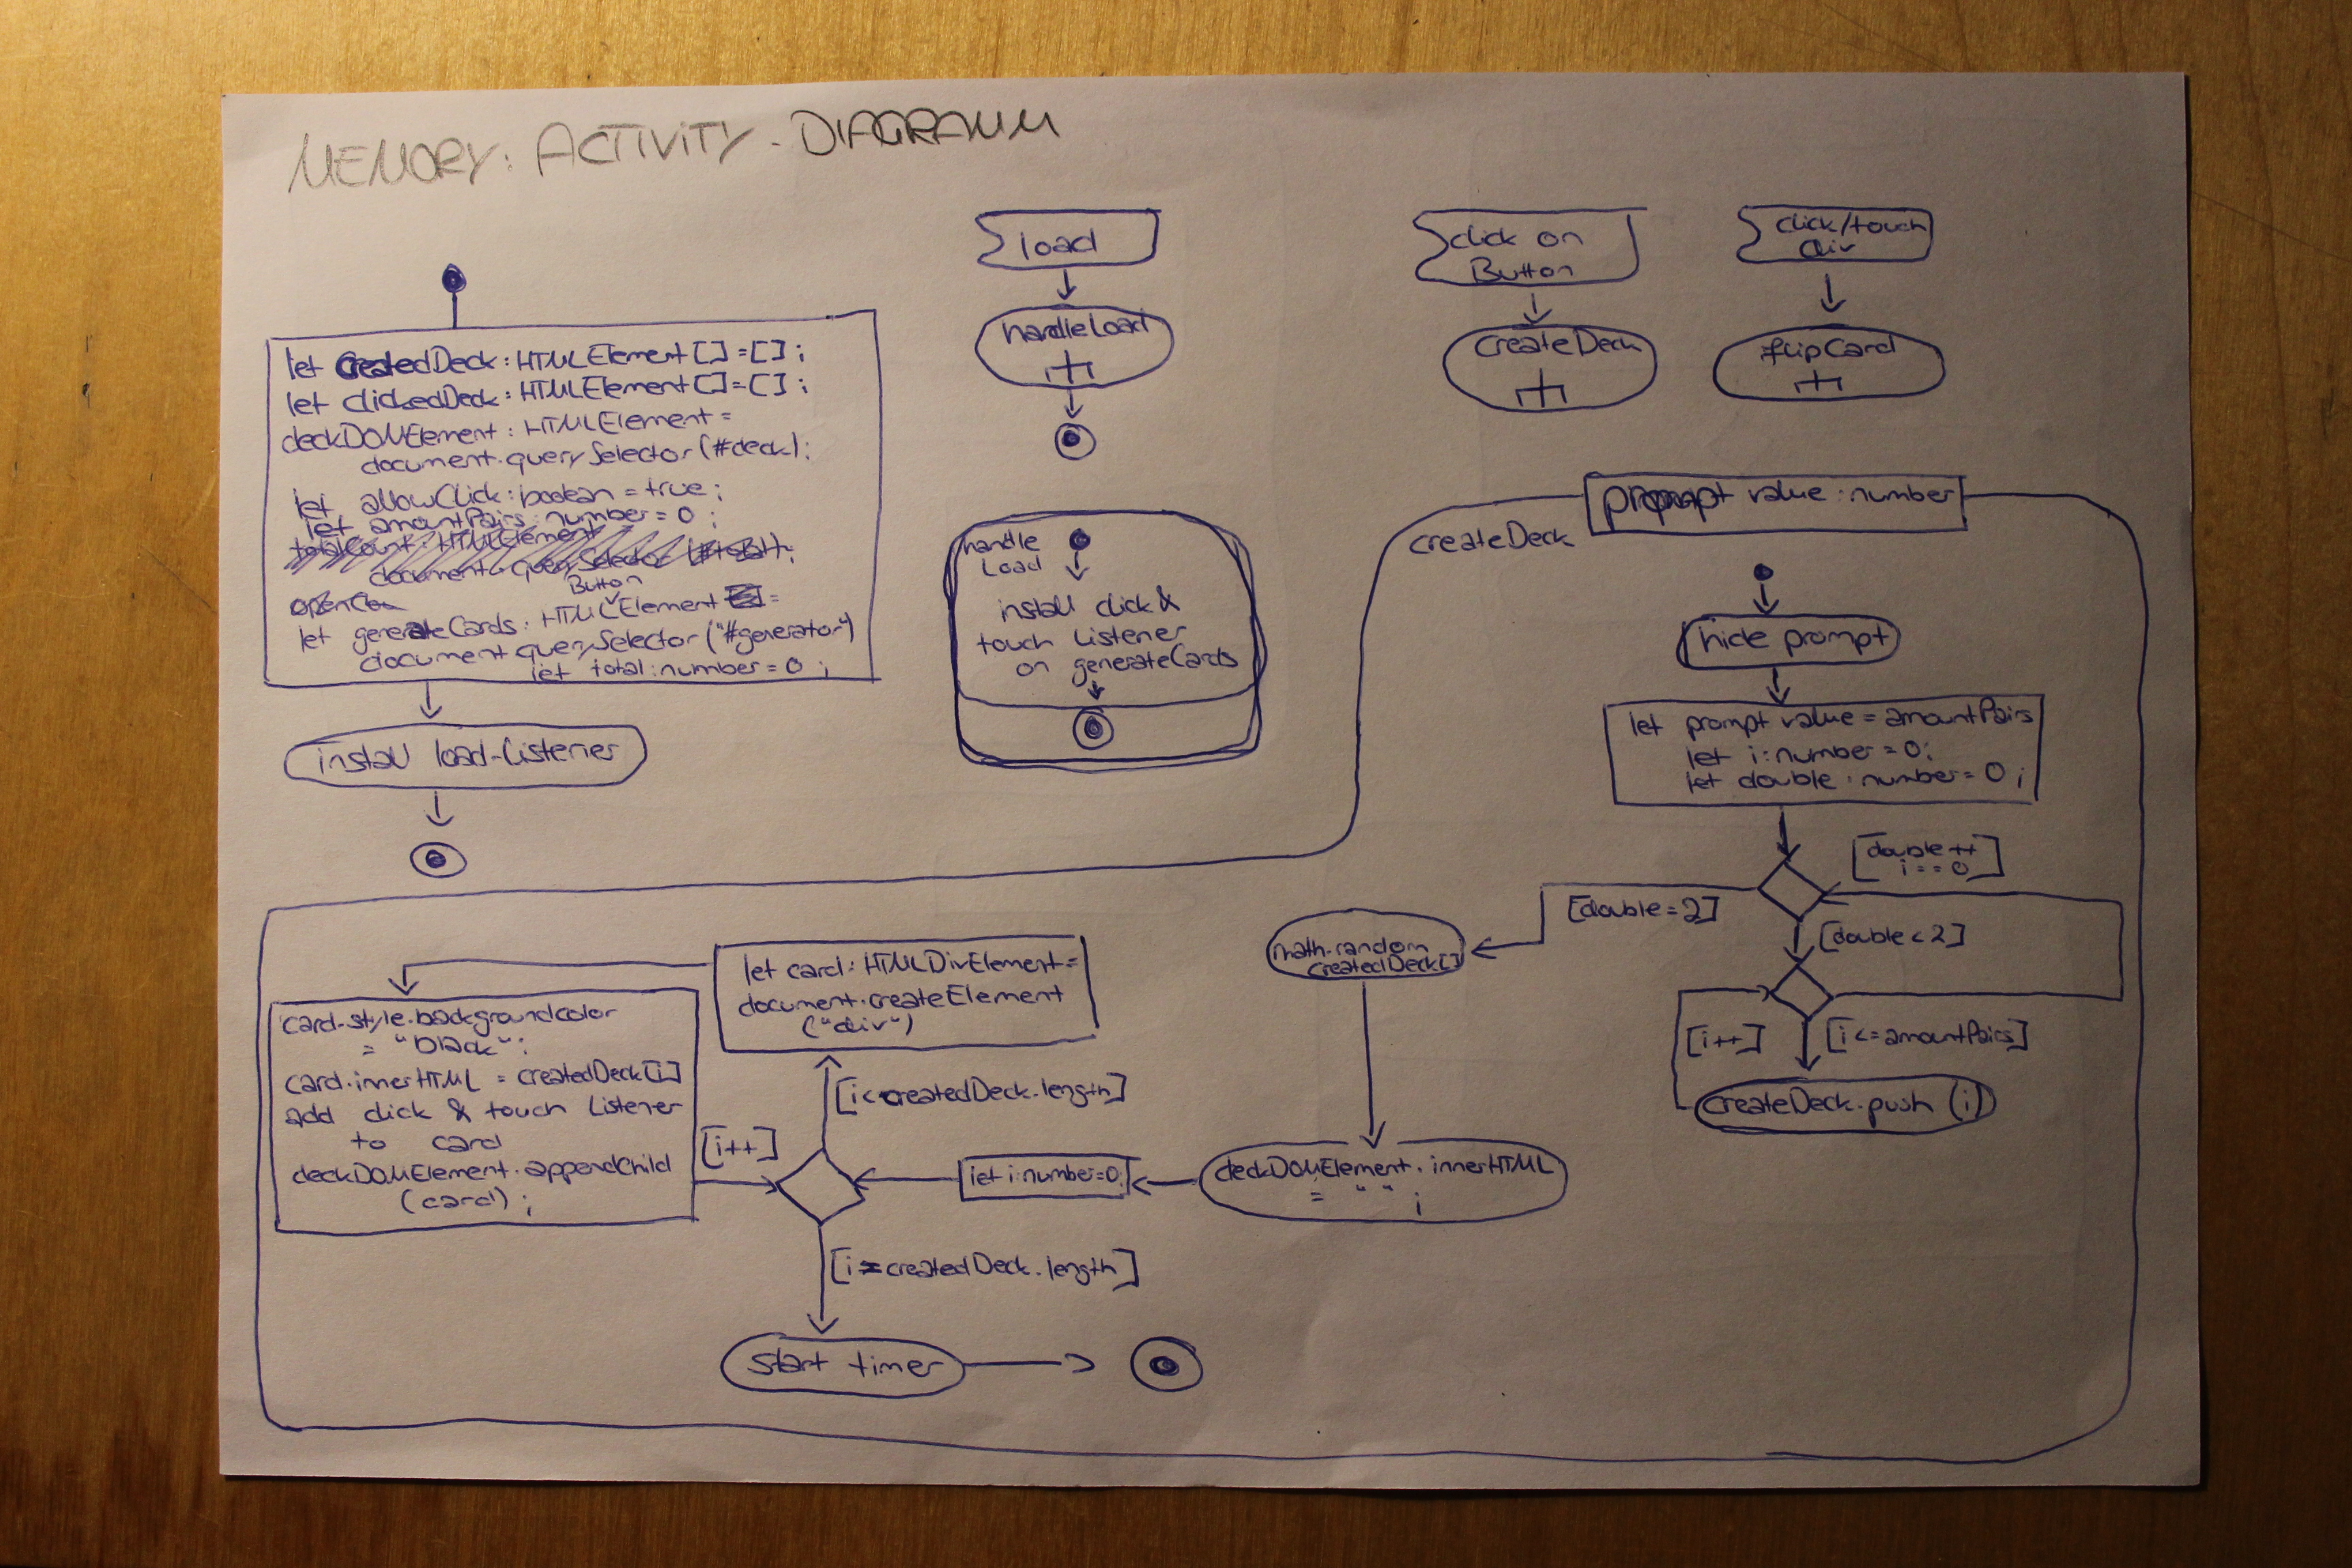 MEMORY: ACTIVITY-DIAGRAMM
let createdDeck: HTMLElement[]=[];
let clickedDeck: HTMLElement[]=[];
deckDOMElement: HTMLElement =
document.querySelector(#deck);
let allowClick: boolean = true;
let amountPairs: number = 0;
totalCount: HTMLElement
document.querySelector
Button
let generateCards: HTMLElement =
document.querySelector("#generator")
let total: number = 0;
install load-Listener
load
handleLoad
handle
Load
install click &
touch Listener
on generateCards
click on
Button
createDeck
click/touch
div
flipCard
createDeck
prompt value: number
hide prompt
let prompt value = amountPairs
let i: number = 0;
let double: number = 0;
[double++
i == 0]
[double = 2]
[double < 2]
[i++]
[i <= amountPairs]
createDeck.push(i)
math.random
createdDeck[]
deckDOMElement.innerHTML
= " ";
let i: number=0;
[i < createdDeck.length]
let card: HTMLDivElement =
document.createElement
("div")
card.style.backgroundcolor
= "black";
card.innerHTML = createdDeck[i]
add click & touch Listener
to card
deckDOMElement.appendChild
(card);
[i++]
[i = createdDeck.length]
start timer